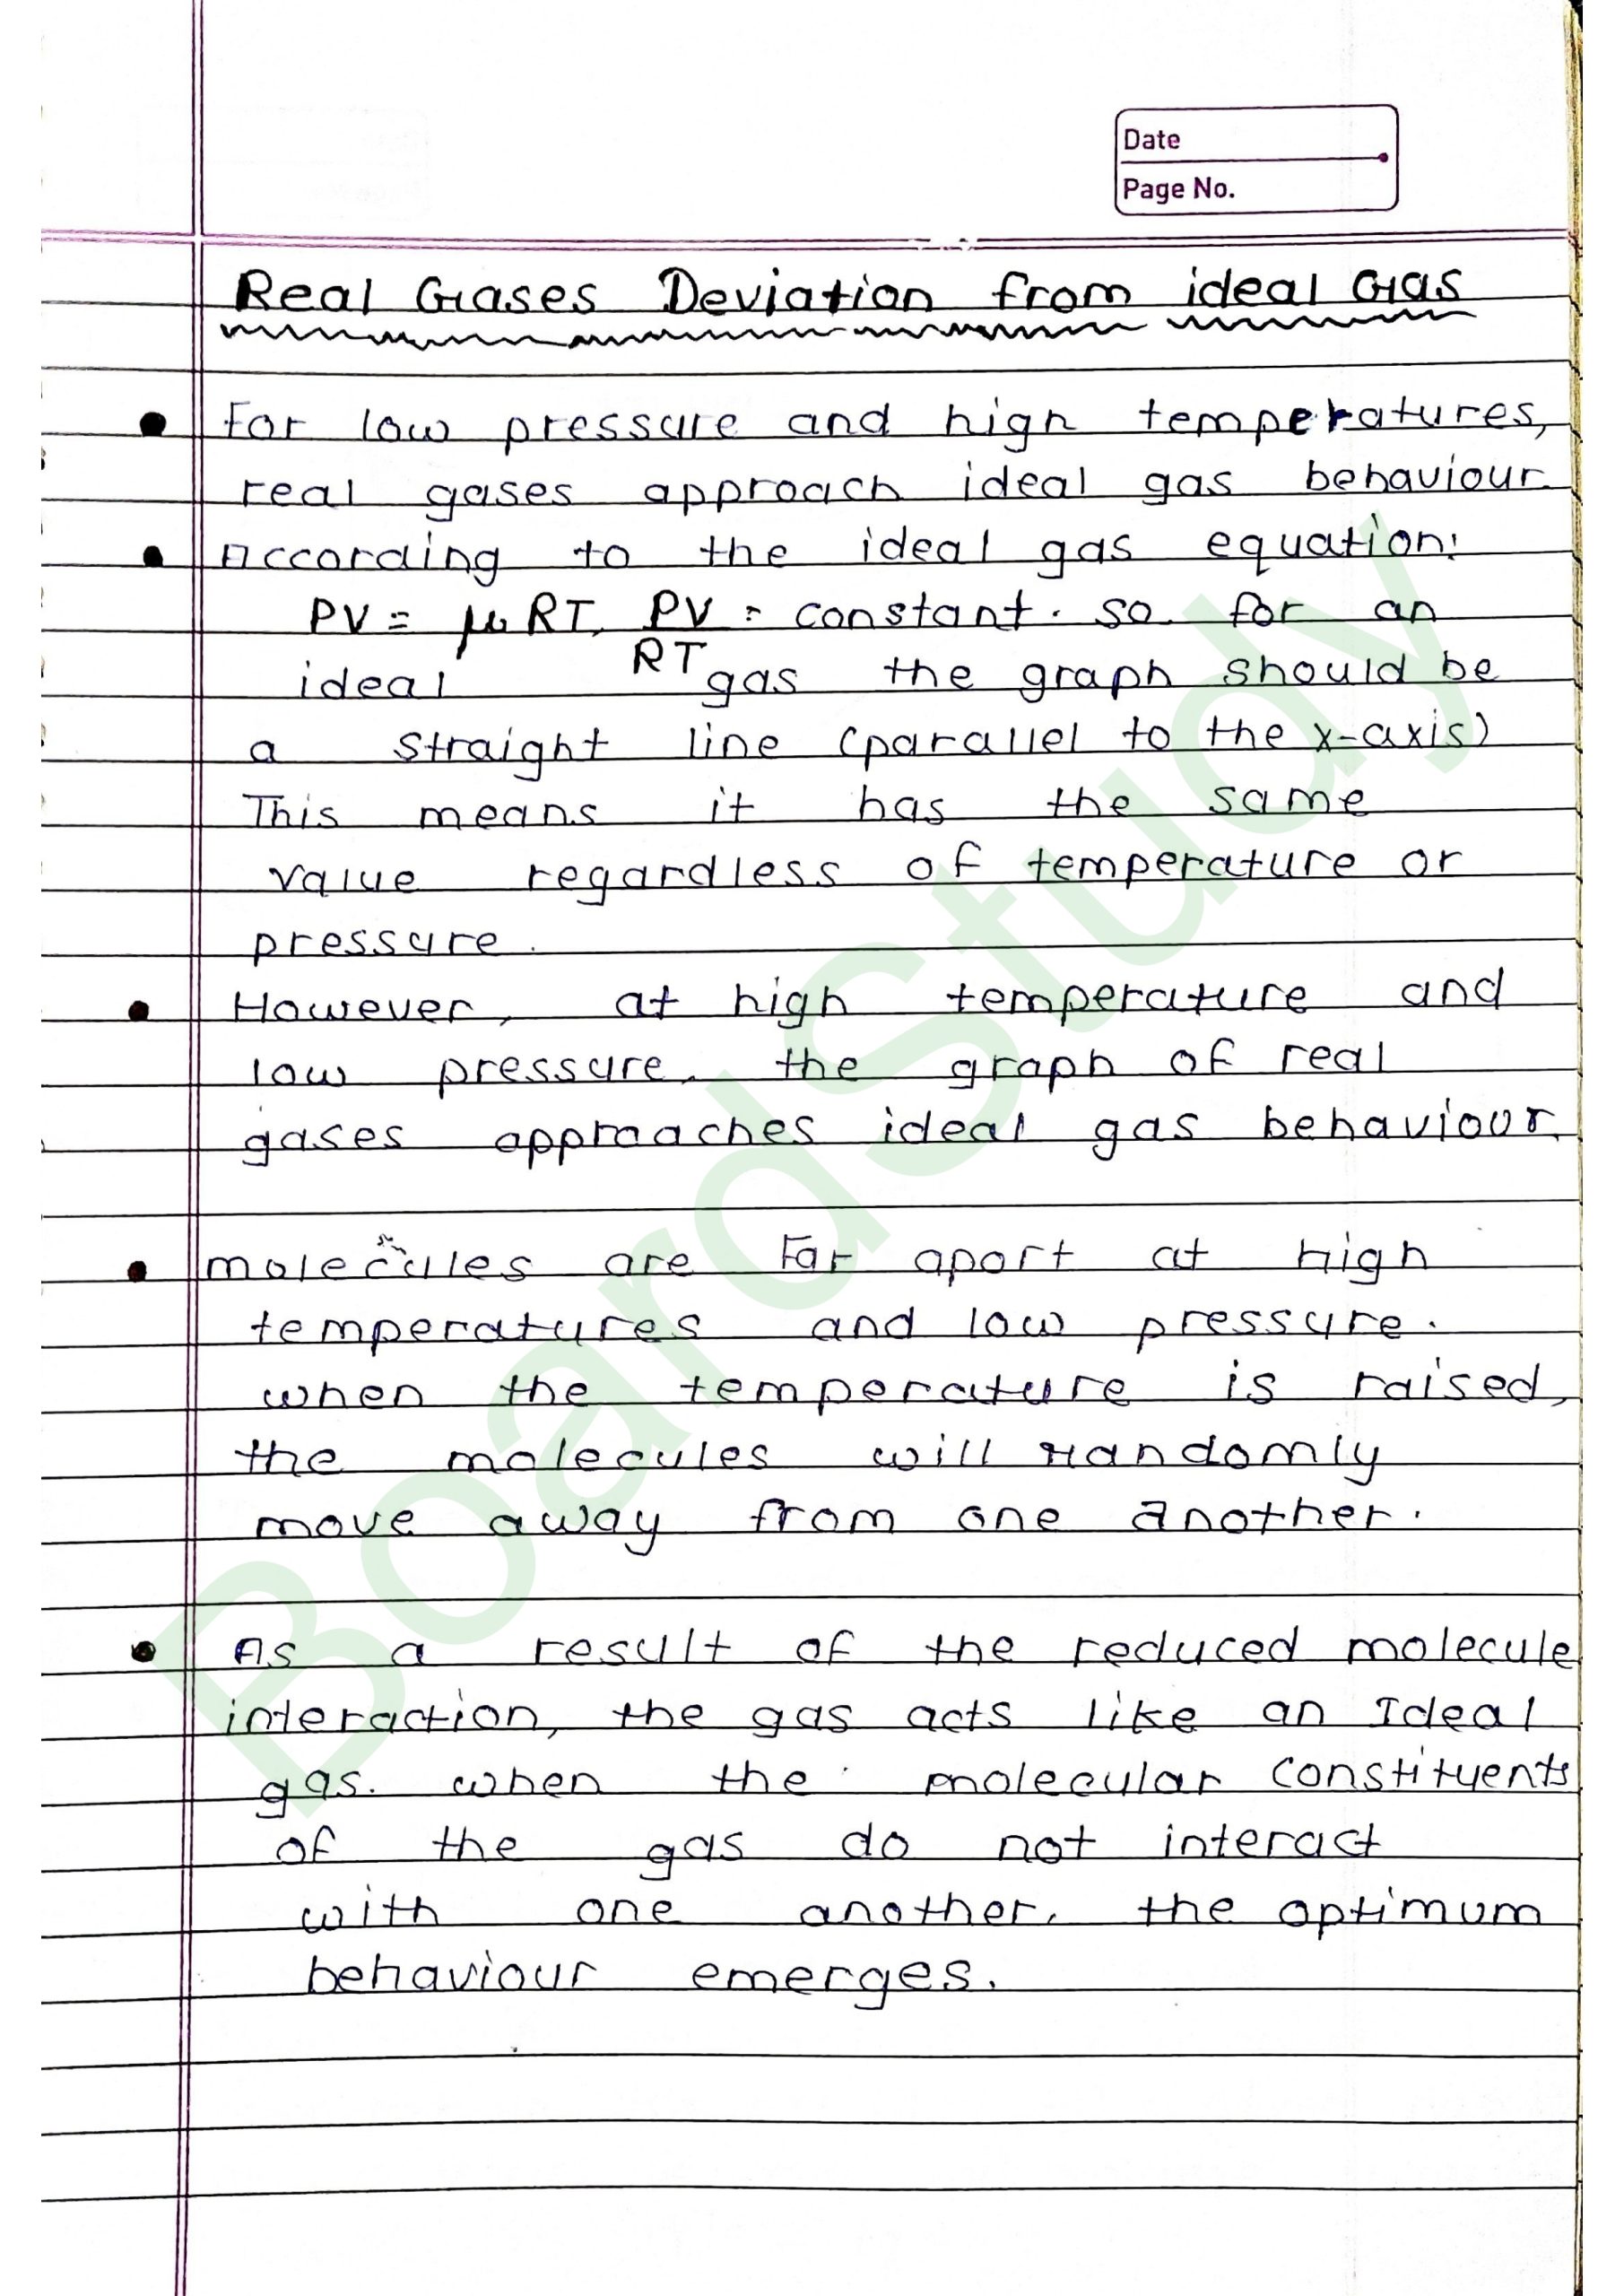 Date
Page No.
Real Gases Deviation from ideal Gas
For low pressure and high temperatures,
real gases approach ideal gas behaviour.
According to the ideal gas equation:
PV = μRT, PV/RT = constant. so for an
ideal gas the graph should be
a straight line (parallel to the x-axis)
This means it has the same
value regardless of temperature or
pressure.
However, at high temperature and
low pressure, the graph of real
gases approaches ideal gas behaviour.
molecules are Far apart at high
temperatures and low pressure.
when the temperature is raised,
the molecules will randomly
move away from one another.
As a result of the reduced molecule
interaction, the gas acts like an Ideal
gas. when the molecular constituents
of the gas do not interact
with one another, the optimum
behaviour emerges.
BoardStudy